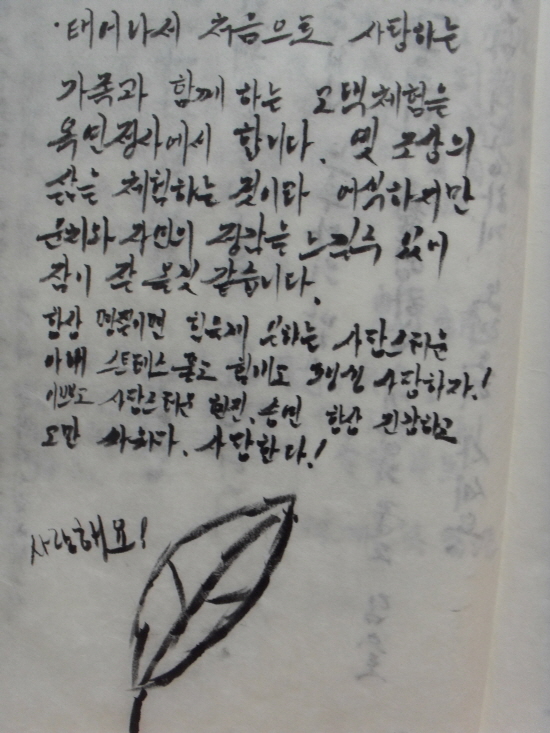 ·태어나서 처음으로 사랑하는
가족과 함께 하는 고택체험은
옥연정사에서 합니다. 옛 조상의
삶을 체험하는 것이라 어색하지만
운치와 자연의 정감을 느낄수 있어
잠이 잘 올것 같습니다.
항상 명품이면 한육제 못하는 사랑스러운
아내 스트레스 풀고 힘내도 사랑하자!
이쁘고 사랑스러운 현진, 승연 항상 건강하고
도만 사랑한다!
사랑해요!